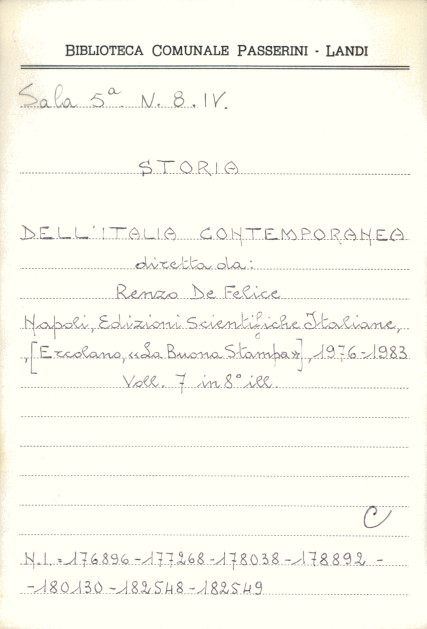 BIBLIOTECA COMUNALE PASSERINI - LANDI
Sala 5ª N. 8. IV.
STORIA
DELL'ITALIA CONTEMPORANEA
diretta da:
Renzo De Felice
Napoli, Edizioni Scientifiche Italiane,
,[Ercolano, «La Buona Stampa»], 1976-1983
Voll. 7 in 8° ill.
C
N.I. = 176896 - 177268 - 178038 - 178892 -
- 180130 - 182548 - 182549